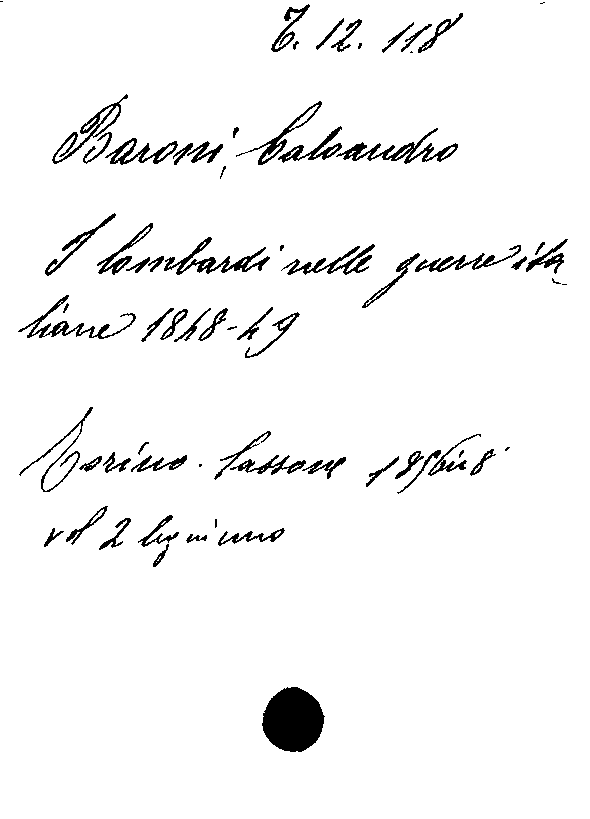 6. 12. 118
Baroni, Caloandro
I lombardi nelle guerre ita-
liane 1848-49
Torino. Cassone 1856 in 8°
vol 2 leg in uno